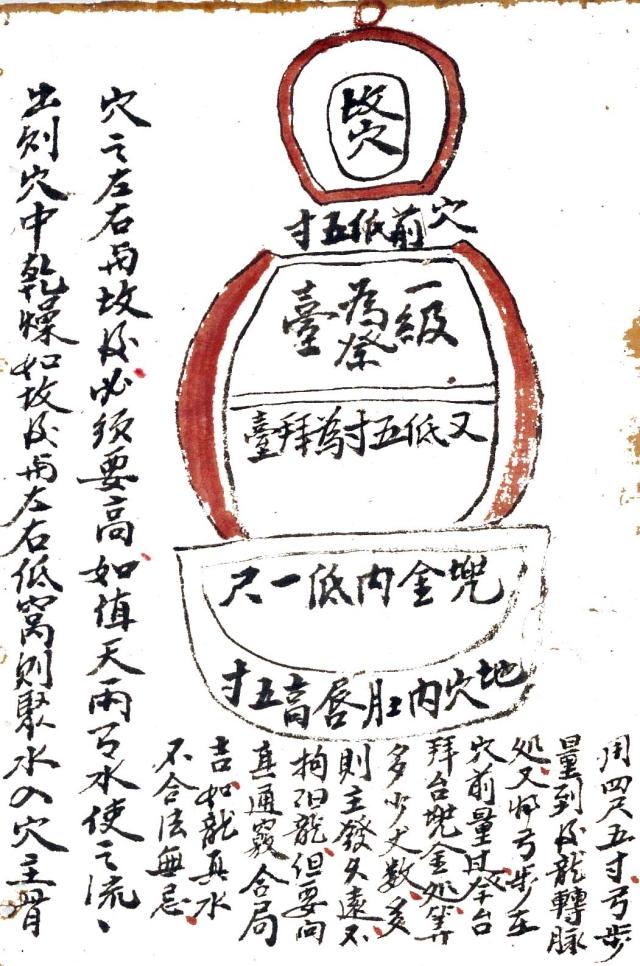 坆穴
穴前低五寸
一級
為祭
臺
又低五寸為拜臺
兜金內低一尺
地穴內肚唇高五寸
用四尺五寸弓步
量到後龍轉脉
処又將弓步在
穴前量过祭台
拜台兜金処筭
多少丈数多
則主發久遠不
拘龍但要向
直通竅合局
吉如龍真水
不合法無忌
穴之左右与坆後必须要高如值天雨水使之流
出則穴中乾燥如坆後与左右低窝則聚水入穴主骨